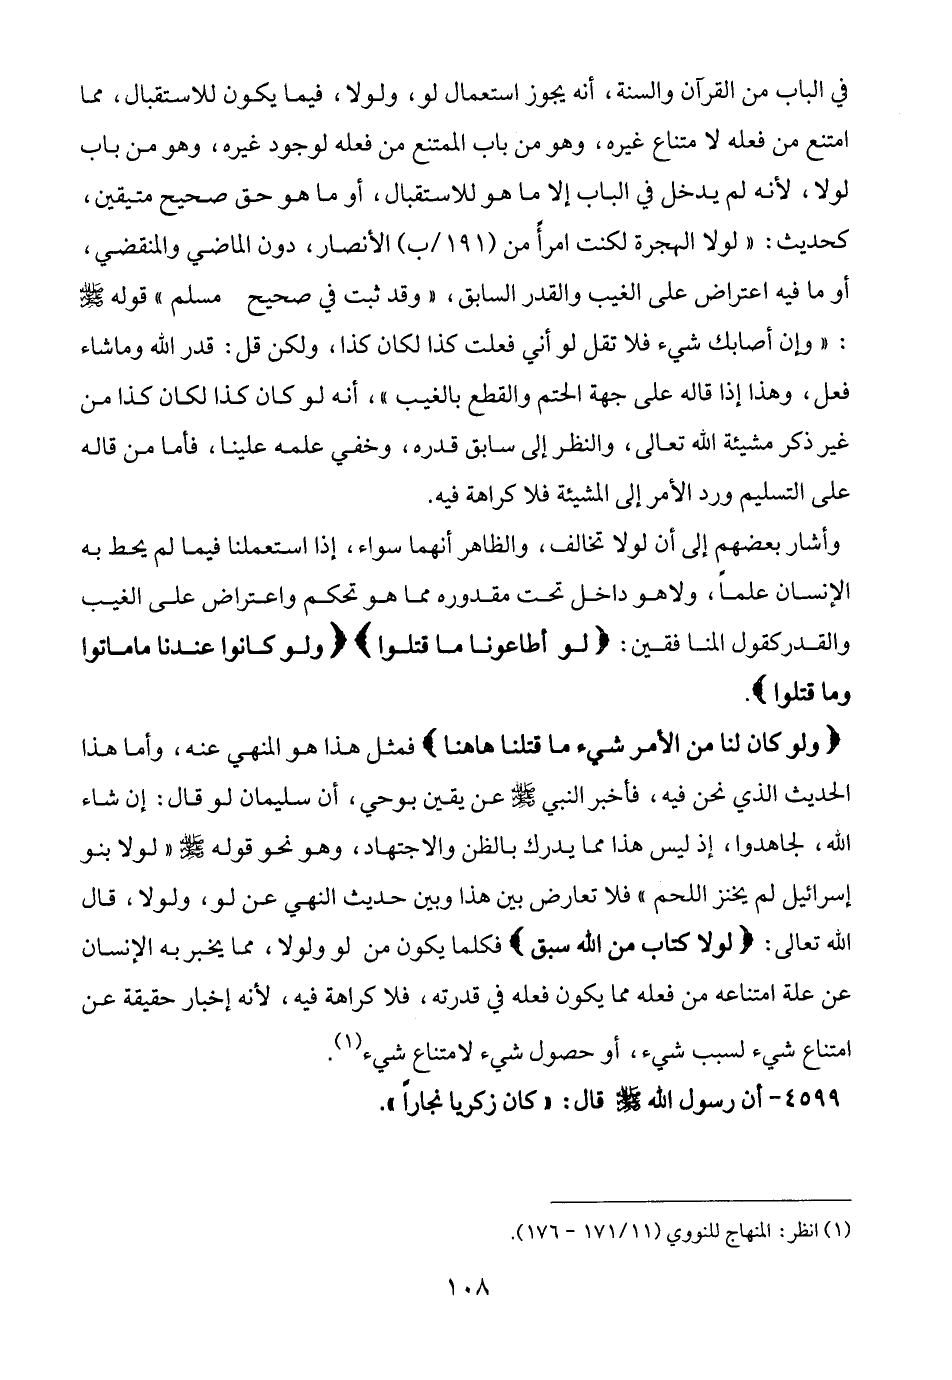 في الباب من القرآن والسنة، أنه يجوز استعمال لو، ولولا، فيما يكون للاستقبال، مما
امتنع من فعله لا متناع غيره، وهو من باب الممتنع من فعله لوجود غيره، وهو من باب
لولا، لأنه لم يدخل في الباب إلا ما هو للاستقبال، أو ما هو حق صحيح متيقين،
كحديث: « لولا الهجرة لكنت امرأً من (١٩١/ب) الأنصار، دون الماضي والمنقضي،
أو ما فيه اعتراض على الغيب والقدر السابق، « وقد ثبت في صحيح مسلم » قوله ﷺ
: « وإن أصابك شيء فلا تقل لو أني فعلت كذا لكان كذا، ولكن قل: قدر الله وماشاء
فعل، وهذا إذا قاله على جهة الحتم والقطع بالغيب »، أنه لو كان كذا لكان كذا من
غير ذكر مشيئة الله تعالى، والنظر إلى سابق قدره، وخفي علمه علينا، فأما من قاله
على التسليم ورد الأمر إلى المشيئة فلا كراهة فيه.
وأشار بعضهم إلى أن لولا تخالف، والظاهر أنهما سواء، إذا استعملنا فيما لم يحط به
الإنسان علماً، ولاهو داخل تحت مقدوره مما هو تحكم واعتراض على الغيب
والقدركقول المنا فقين: ﴿ لو أطاعونا ما قتلوا ﴾﴿ ولو كانوا عندنا ماماتوا
وما قتلوا ﴾.
﴿ ولو كان لنا من الأمر شيء ما قتلنا هاهنا ﴾ فمثل هذا هو المنهي عنه، وأما هذا
الحديث الذي نحن فيه، فأخبر النبي ﷺ عن يقين بوحي، أن سليمان لو قال: إن شاء
الله، لجاهدوا، إذ ليس هذا مما يدرك بالظن والاجتهاد، وهو نحو قوله ﷺ « لولا بنو
إسرائيل لم يخنز اللحم » فلا تعارض بين هذا وبين حديث النهي عن لو، ولولا، قال
الله تعالى: ﴿ لولا كتاب من الله سبق ﴾ فكلما يكون من لو ولولا، مما يخبر به الإنسان
عن علة امتناعه من فعله مما يكون فعله في قدرته، فلا كراهة فيه، لأنه إخبار حقيقة عن
امتناع شيء لسبب شيء، أو حصول شيء لامتناع شيء(١).
٤٥٩٩- أن رسول الله ﷺ قال: « كان زكريا نجاراً ».
(١) انظر: المنهاج للنووي (١٧١/١١ – ١٧٦).
١٠٨